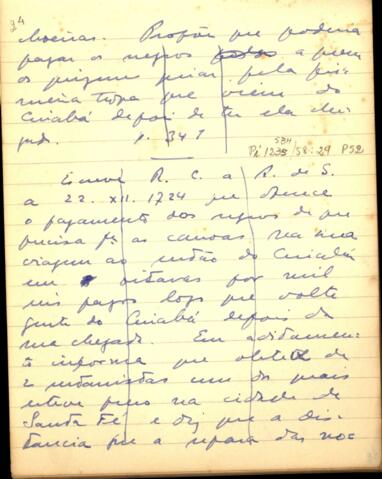 94
Propõe que poderia
pagar os negros a quem
os pagar pela pri
meira tropa que viem do
Cuiabá depois de ter ela che
gado. p. 341
534
Pi 1235/58:29 P52
Escreve R. C. a R. de S.
a 22. XII. 1724 que
o pagamento dos negros de que
precisa pª as canoas na sua
viagem ao sertão do Cuiabá
em oitavas por mil
reis pagos logo que volte
gente do Cuiabá depois da
sua chegada. Em aditamen
to informa que obteve de
2 que um dos quais
esteve preso na cidade de
Santa Fé e diz que a dis
tancia que a separa das